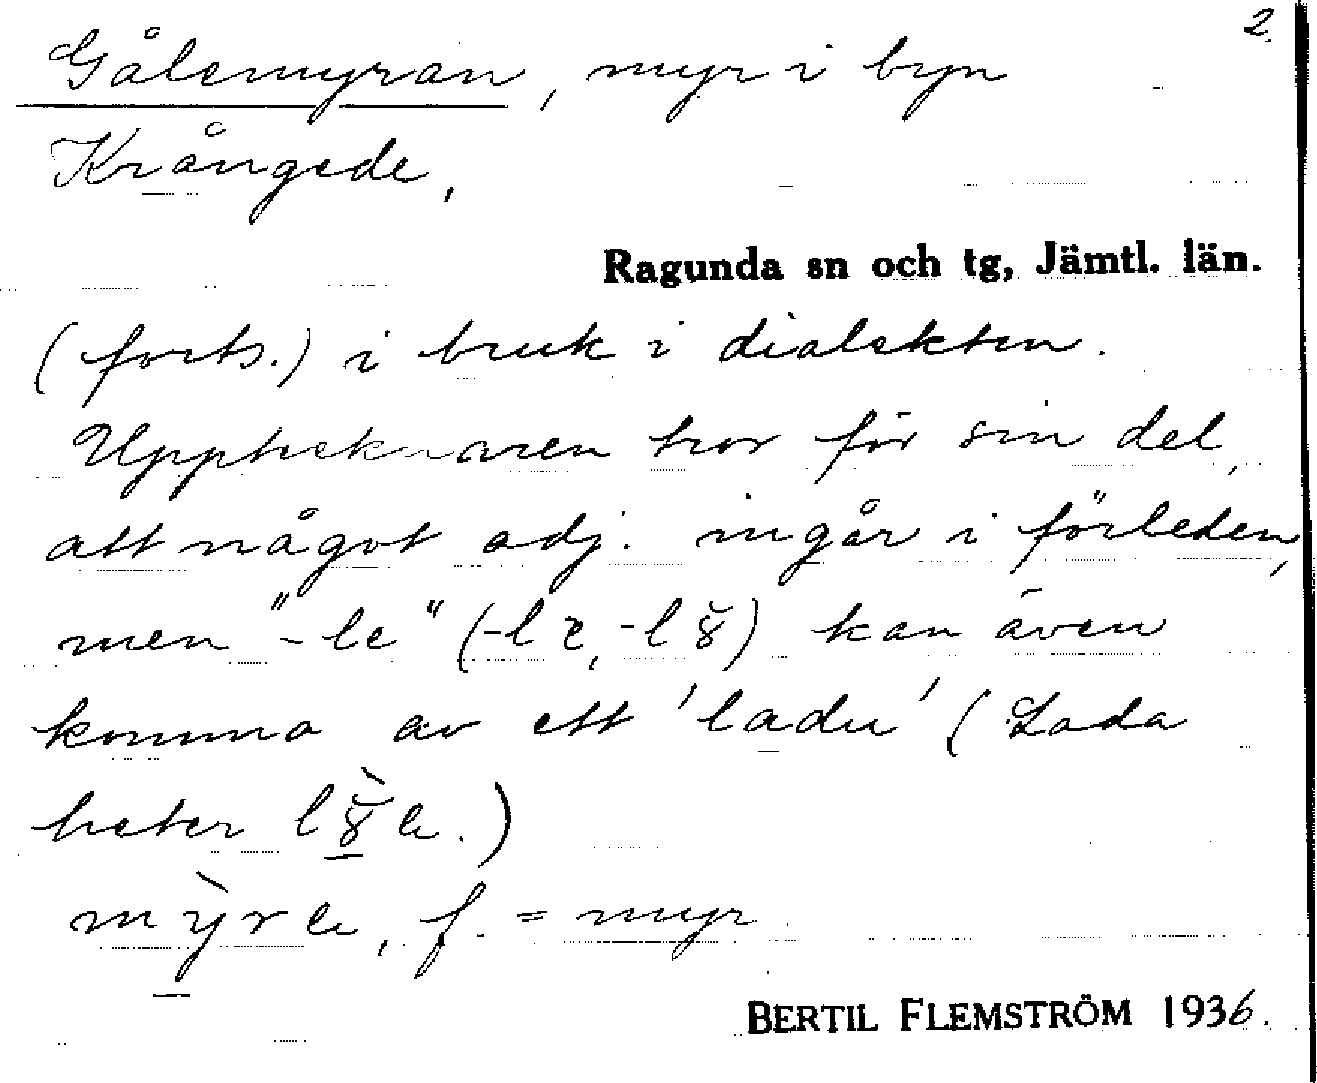 2.
Gålemyran, myr i byn
Krångede,
Ragunda sn och tg, Jämtl. län.
(forts.) i bruk i dialekten.
Upptecknaren tror för sin del,
att något adj. ingår i förleden,
men "-le" (-lɛ, -l8̆) kan även
komma av ett 'ladu' (Lada
heter l8̆̀a.)
mỳra, f. = myr
BERTIL FLEMSTRÖM 1936.